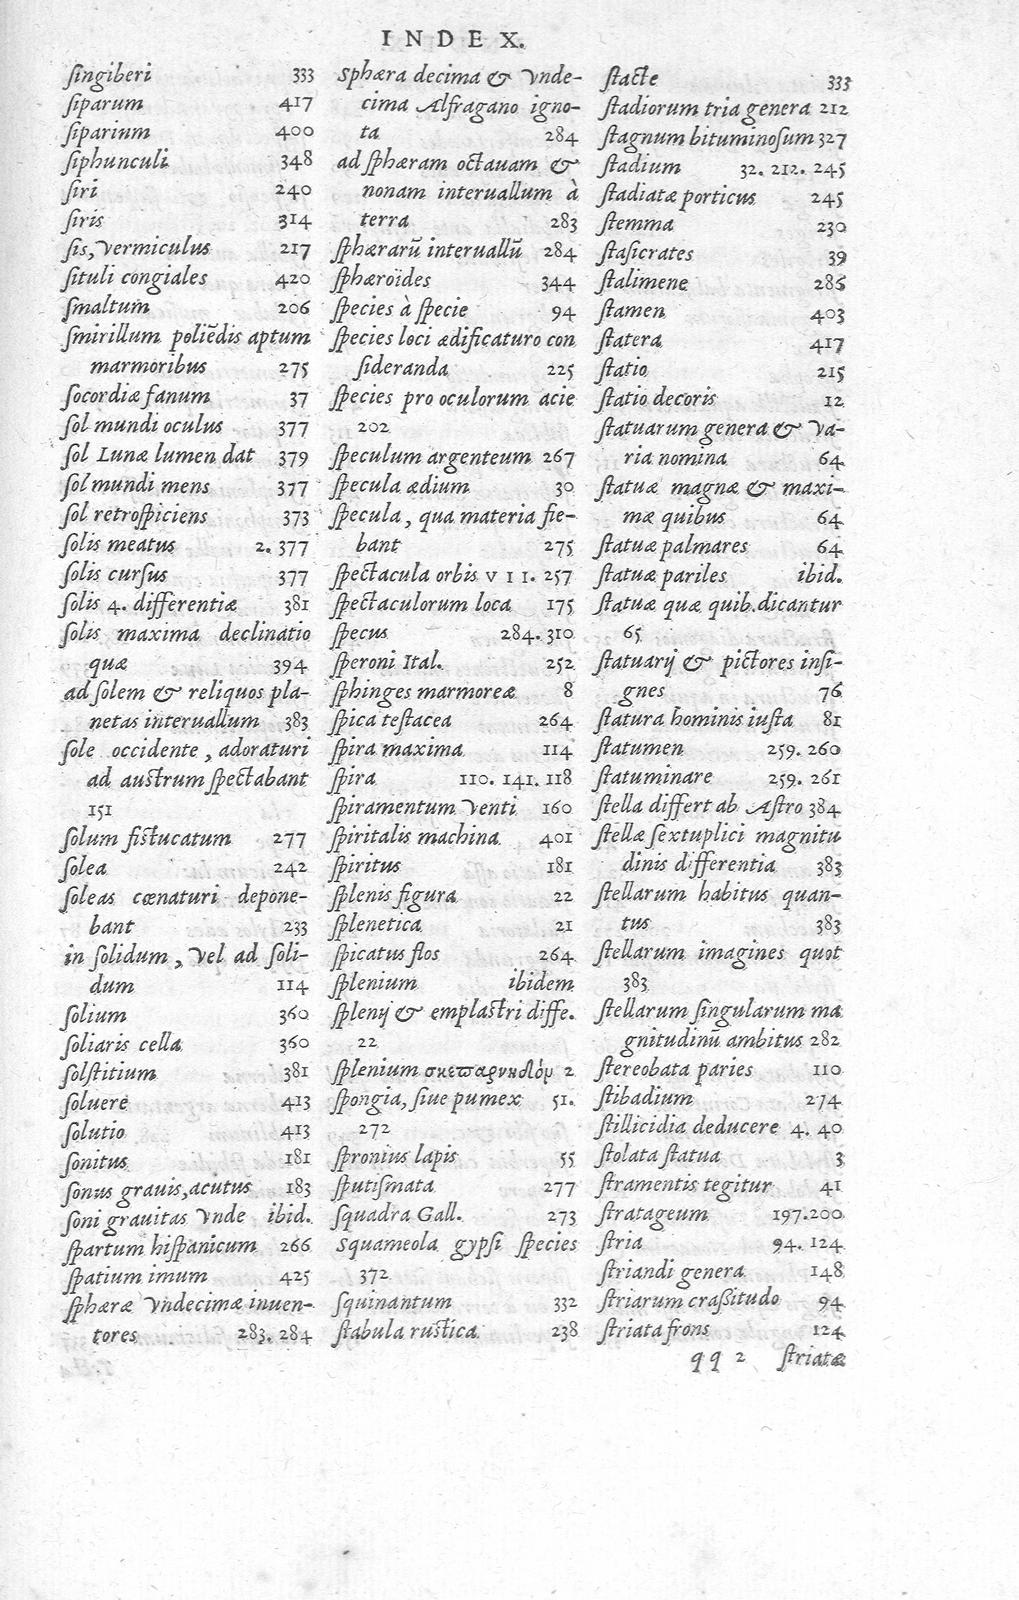 INDEX.
ſingiberi 333
ſiparum 417
ſiparium 400
ſiphunculi 348
ſiri 240
ſiris 314
ſis, vermiculus 217
ſituli congiales 420
ſmaltum 206
ſmirillum poliēdis aptum
marmoribus 275
ſocordiæ fanum 37
ſol mundi oculus 377
ſol Lunæ lumen dat 379
ſol mundi mens 377
ſol retroſpiciens 373
ſolis meatus 2. 377
ſolis curſus 377
ſolis 4. differentiæ 381
ſolis maxima declinatio
quæ 394
ad ſolem & reliquos pla-
netas interuallum 383
ſole occidente, adoraturi
ad auſtrum ſpectabant
151
ſolum fiſtucatum 277
ſolea 242
ſoleas cœnaturi depone-
bant 233
in ſolidum, vel ad ſoli-
dum 114
ſolium 360
ſoliaris cella 360
ſolſtitium 381
ſoluere 413
ſolutio 413
ſonitus 181
ſonus grauis, acutus 183
ſoni grauitas vnde ibid.
ſpartum hiſpanicum 266
ſpatium imum 425
ſphæræ vndecimæ inuen-
tores 283. 284
Sphæra decima & vnde-
cima Alfragano igno-
ta 284
ad ſphæram octauam &
nonam interuallum à
terra 283
ſphærarū interuallū 284
ſphæroïdes 344
ſpecies à ſpecie 94
ſpecies loci ædificaturo con
ſideranda 225
ſpecies pro oculorum acie
202
ſpeculum argenteum 267
ſpecula ædium 30
ſpecula, qua materia fie-
bant 275
ſpectacula orbis VII. 257
ſpectaculorum loca 175
ſpecus 284. 310
ſperoni Ital. 252
ſphinges marmoreæ 8
ſpica teſtacea 264
ſpira maxima 114
ſpira 110. 141. 118
ſpiramentum venti 160
ſpiritalis machina 401
ſpiritus 181
ſplenis figura 22
ſplenetica 21
ſpicatus flos 264
ſplenium ibidem
ſplenij & emplaſtri diffe.
22
ſplenium 2
ſpongia, ſiue pumex 51.
272
ſpronius lapis 55
ſputiſmata 277
ſquadra Gall. 273
Squameola gypſi ſpecies
372
ſquinantum 332
ſtabula ruſtica 238
ſtacte 333
ſtadiorum tria genera 212
ſtagnum bituminoſum 327
ſtadium 32. 212. 245
ſtadiatæ porticus 245
ſtemma 230
ſtaſicrates 39
ſtalimene 286
ſtamen 403
ſtatera 417
ſtatio 215
ſtatio decoris 12
ſtatuarum genera & va-
ria nomina 64
ſtatuæ magnæ & maxi-
mæ quibus 64
ſtatuæ palmares 64
ſtatuæ pariles ibid.
ſtatuæ quæ quib. dicantur
65
ſtatuarij & pictores inſi-
gnes 76
ſtatura hominis iuſta 81
ſtatumen 259. 260
ſtatuminare 259. 261
ſtella differt ab Aſtro 384
ſtellæ ſextuplici magnitu
dinis differentia 383
ſtellarum habitus quan-
tus 383
ſtellarum imagines quot
383
ſtellarum ſingularum ma
gnitudinū ambitus 282
ſtereobata paries 110
ſtibadium 274
ſtillicidia deducere 4. 40
ſtolata ſtatua 3
ſtramentis tegitur 41
ſtratageum 197. 200
ſtria 94. 124
ſtriandi genera 148
ſtriarum craßitudo 94
ſtriata frons 124
qq 2 ſtriatæ